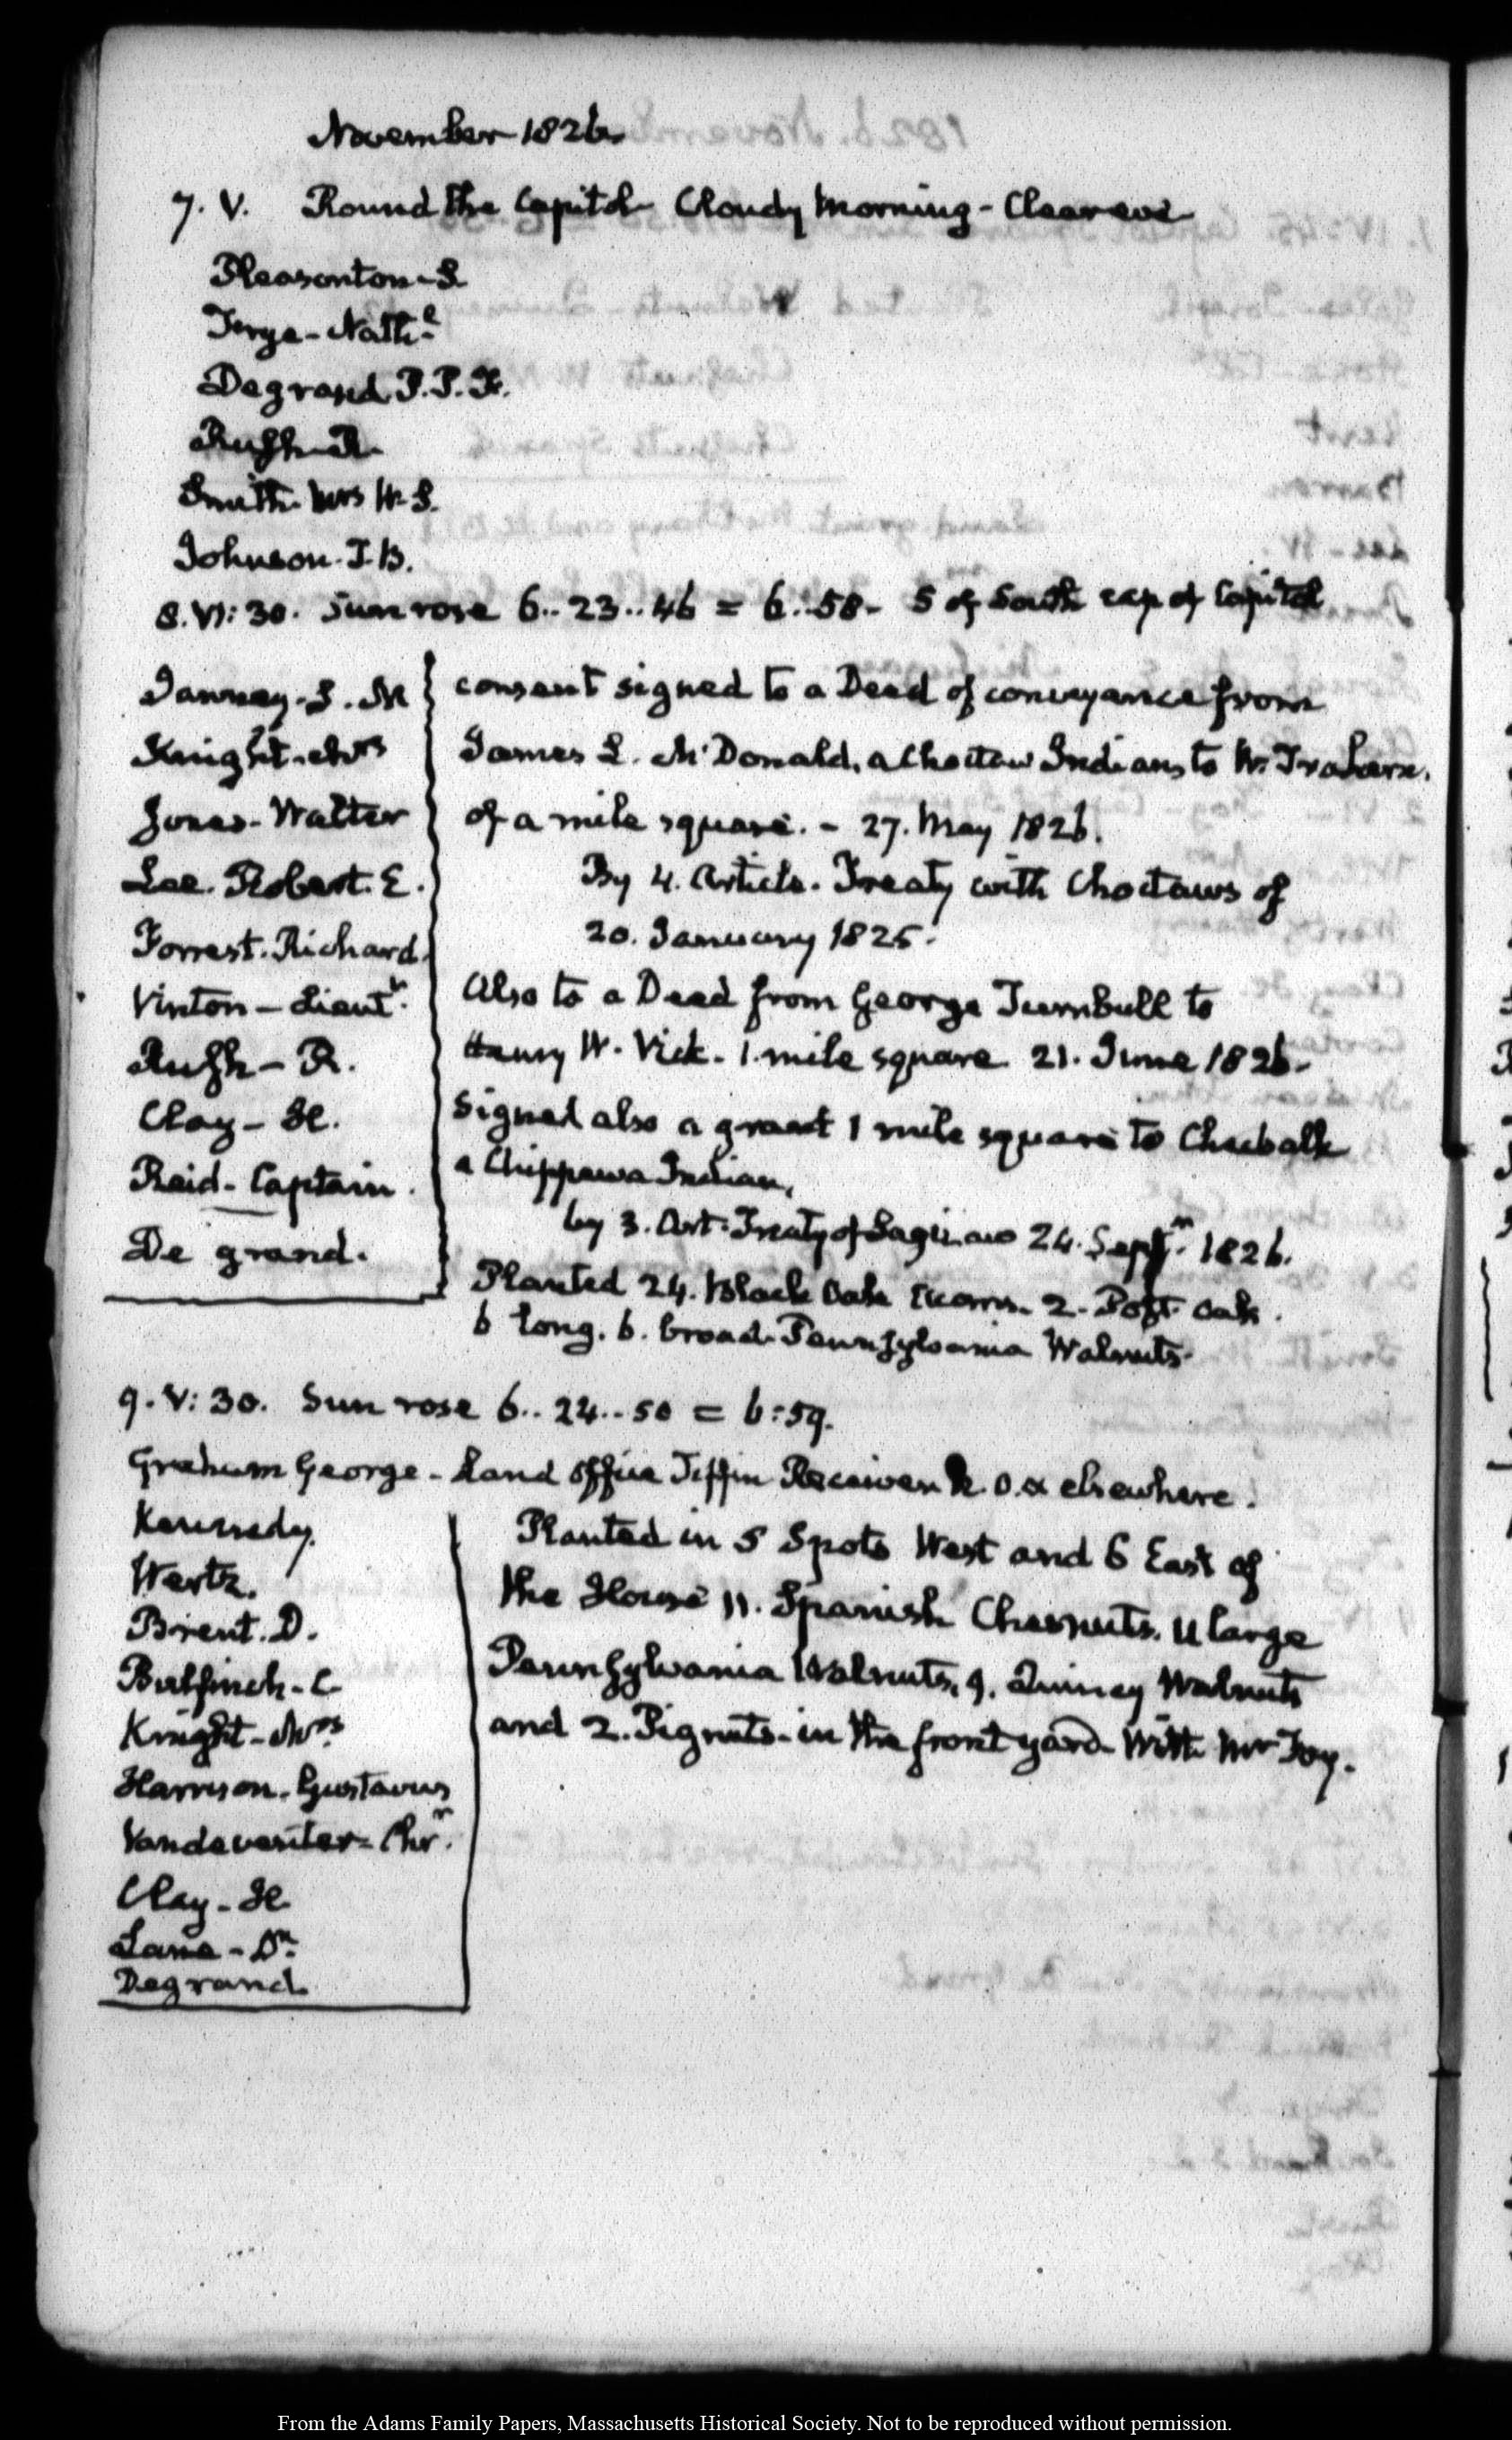 November 1826.
7. V. Round the Capitol Cloudy Morning - Cleared
Pleasonton - S.
Frye - Nath.l
Degrand P.P.F.
Rush R.
Smith Mrs W. S.
Johnson. J. B.
8. VI: 30. Sun rose 6..23..46 = 6..58 - S of South cap of Capitol
Janney. S. M
Knight. Mrs
Jones - Walter
Lee. Robert. E.
Forrest. Richard.
Vinton - Lieut.
Rush - R.
Clay - H.
Reid - Captain.
De grand.
consent signed to a Deed of conveyance from
James L. McDonald, a Choctaw Indian, to W. Trahern.
of a mile square. - 27. May 1826.
By 4. Article. Treaty with Choctaws of
20. January 1825.
Also to a Deed from George Turnbull to
Henry W. Vick. 1. mile square 21. June 1826.
Signed also a grant 1 mile square to
a Chippewa Indian,
by 3. Art: Treaty of Saginaw 24. Septr. 1826.
Planted 24. Black Oak Acorns. 2. Post Oak.
6 long. 6. broad Pennsylvania Walnuts.
9. V: 30. Sun rose 6..24..50 = 6:59.
Graham George - Land office Tiffin Receiver elsewhere.
Kennedy.
Wertz.
Brent. D.
Bulfinch - C
Knight - Mrs
Harrison. Gustavus
Vandeventer - Chr.
Clay - H
Lane - Dr.
Degrand
Planted in 5 Spots West and 6 East of
the House 11. Spanish Chesnuts. 11 large
Pennsylvania Walnuts, 9. Quincy Walnuts
and 2. Pignuts - in the front yard - With Mr Foy.
From the Adams Family Papers, Massachusetts Historical Society. Not to be reproduced without permission.